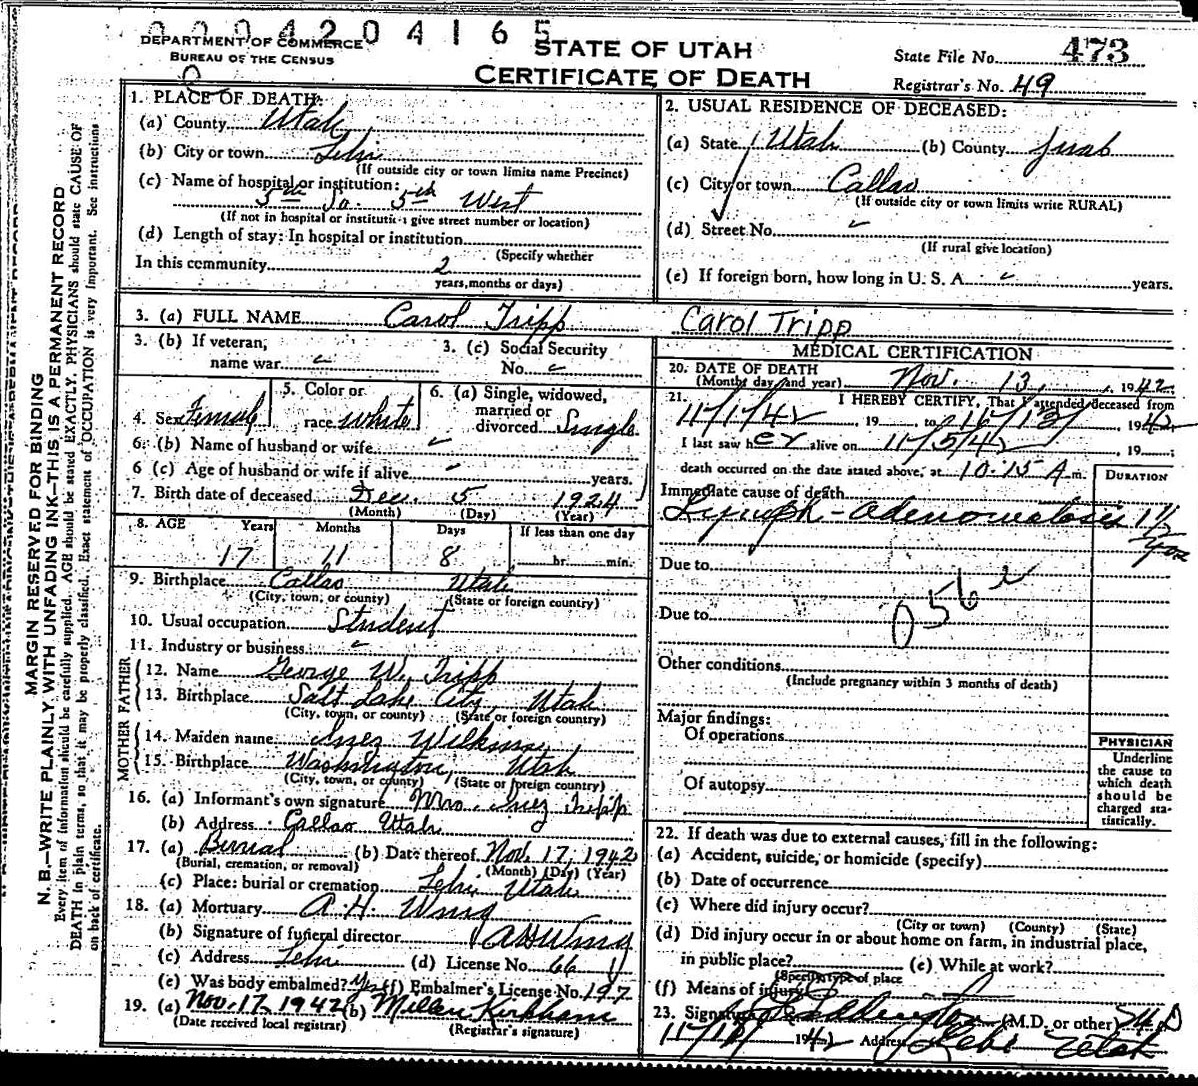 0004204165
DEPARTMENT OF COMMERCE
BUREAU OF THE CENSUS
STATE OF UTAH
CERTIFICATE OF DEATH
State File No. 473
Registrar's No. 49
MARGIN RESERVED FOR BINDING
N. B.—WRITE PLAINLY, WITH UNFADING INK—THIS IS A PERMANENT RECORD
Every item of information should be carefully supplied. AGE should be stated EXACTLY. PHYSICIANS should state CAUSE OF
DEATH in plain terms, so that it may be properly classified. Exact statement of OCCUPATION is very important. See instructions
on back of certificate.
1. PLACE OF DEATH:
(a) County Utah
(b) City or town Lehi
(If outside city or town limits name Precinct)
(c) Name of hospital or institution:
5th So. 5th West
(If not in hospital or institution give street number or location)
(d) Length of stay: In hospital or institution
(Specify whether
In this community 2
years, months or days)
2. USUAL RESIDENCE OF DECEASED:
(a) State Utah (b) County Juab
(c) City or town Callao
(If outside city or town limits write RURAL)
(d) Street No.
(If rural give location)
(e) If foreign born, how long in U. S. A. years.
3. (a) FULL NAME Carol Tripp Carol Tripp
3. (b) If veteran,
name war
3. (c) Social Security
No.
4. Sex Female
5. Color or
race white
6. (a) Single, widowed,
married or
divorced Single
6. (b) Name of husband or wife
6 (c) Age of husband or wife if alive years.
7. Birth date of deceased Dec. 5 1924
(Month) (Day) (Year)
8. AGE Years Months Days If less than one day
17 11 8 hr. min.
9. Birthplace Callao Utah
(City, town, or county) (State or foreign country)
10. Usual occupation Student
11. Industry or business
FATHER
12. Name George W. Tripp
13. Birthplace Salt Lake City, Utah
(City, town, or county) (State or foreign country)
MOTHER
14. Maiden name Inez Wilkins
15. Birthplace Washington, Utah
(City, town, or county) (State or foreign country)
16. (a) Informant's own signature Mrs. Inez Tripp
(b) Address Callao Utah
17. (a) Burial (b) Date thereof Nov. 17, 1942
(Burial, cremation, or removal) (Month) (Day) (Year)
(c) Place: burial or cremation Lehi Utah
18. (a) Mortuary A. H. Wing
(b) Signature of funeral director A H Wing
(c) Address Lehi (d) License No. 66
(e) Was body embalmed? Yes (f) Embalmer's License No. 197
19. (a) Nov. 17, 1942 (b) Millen Kirkham
(Date received local registrar) (Registrar's signature)
MEDICAL CERTIFICATION
20. DATE OF DEATH
(Month day and year) Nov. 13, 1942
21. I HEREBY CERTIFY, That I attended deceased from
11/1/42 19 to 1942
I last saw her alive on 11/5/42 19
death occurred on the date stated above, at 10:15 A m.
DURATION
Immediate cause of death
Lymph-adenomatosis 1 1/2 yr
Due to
Due to
056
Other conditions
(Include pregnancy within 3 months of death)
Major findings:
Of operations
Of autopsy
PHYSICIAN
Underline
the cause to
which death
should be
charged sta-
tistically.
22. If death was due to external causes, fill in the following:
(a) Accident, suicide, or homicide (specify)
(b) Date of occurrence
(c) Where did injury occur?
(City or town) (County) (State)
(d) Did injury occur in or about home on farm, in industrial place,
in public place? (e) While at work?
(Specify type of place
(f) Means of injury
23. Signature (M.D. or other) M D
1942 Address Lehi Utah